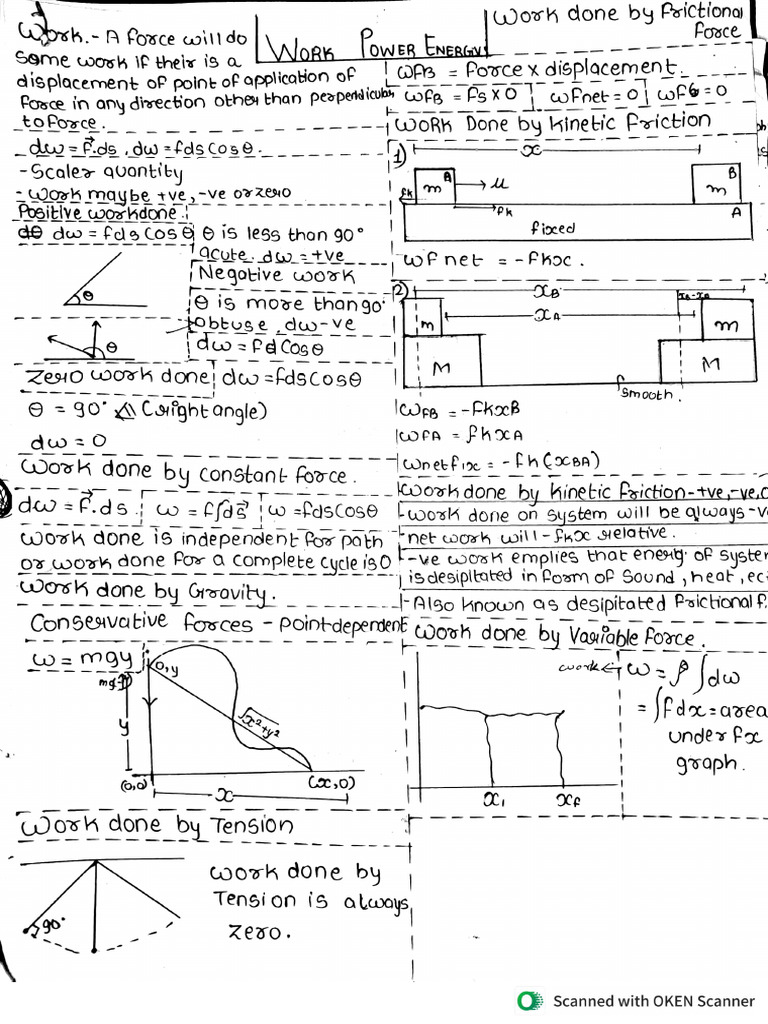 Work.- A force will do
some work if their is a
displacement of point of application of
force in any direction other than perpendicular
to force.
dw = F.ds, dw = fds Cosθ.
- Scaler quantity
- work maybe +ve, -ve or zero
Positive workdone.
dθ dw = fds Cos θ
θ is less than 90°
acute. dw = +ve
θ
Negative work
θ is more than 90°
obtuse, dw -ve
dw = fd Cosθ
θ
Zero work done
dw = fds Cosθ
θ = 90° (right angle)
dw = 0
Work done by constant force.
dw = F.ds.
w = f∫ds
w = fds Cosθ
work done is independent for path
or work done for a complete cycle is 0
Work done by Gravity.
Conservative forces - point dependent
w = mgy
0,y
mg
y
√x²+y²
(0,0)
(x,0)
x
Work done by Tension
90°
work done by
Tension is always
zero.
WORK POWER ENERGY
Work done by Frictional
force
WfB = force x displacement.
WfB = fs x 0
Wfnet = 0
WORK Done by Kinetic friction
1)
x
A
m
μ
fk
fk
B
m
A
fixed
Wf net = -fkx.
2)
xB
xA
m
M
m
M
smooth.
WFB = -fkxB
WFA = fkxA
Wnetfix = -fk(xBA)
Work done by Kinetic friction -+ve,-ve,0
-work done on system will be always -v
-net work will -fkx relative.
-ve work emplies that energy of system
is desipitated in form of sound, heat, ec
-Also known as desipitated frictional f.
Work done by Variable force.
work
w = ∫dw
= ∫fdx = area
under fx
graph.
xi
xf
Scanned with OKEN Scanner